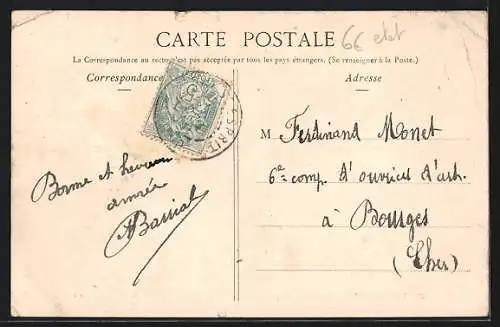 CARTE POSTALE
66 etat
La Correspondance au recto n'est pas acceptée par tous les pays étrangers. (Se renseigner à la Poste.)
Correspondance
Adresse
Bonne et heureuse
année
ABassial
M Ferdinand Monet
6e comp. d'ouvriers d'art.
à Bourges
(Cher)